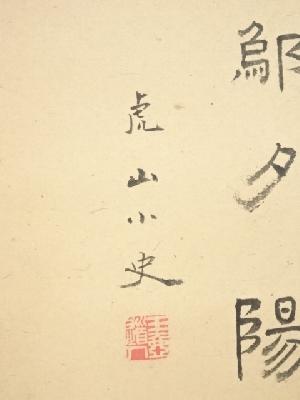 夕陽
虎山小史